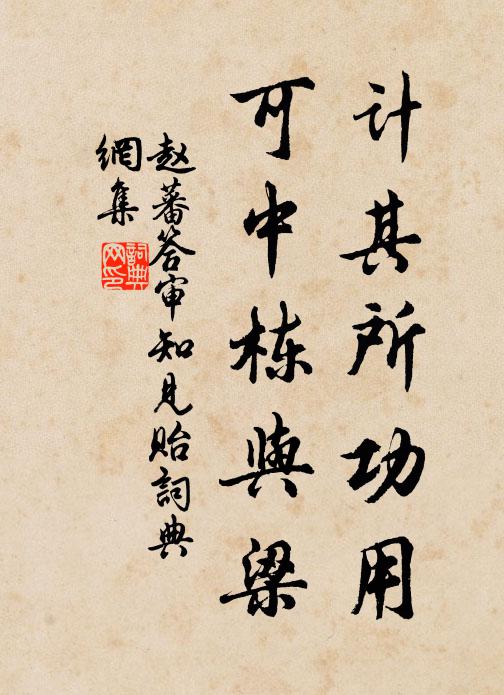 计其所功用
可中栋與梁
赵蕃答审知见贻詞典
網集
詞典
网印